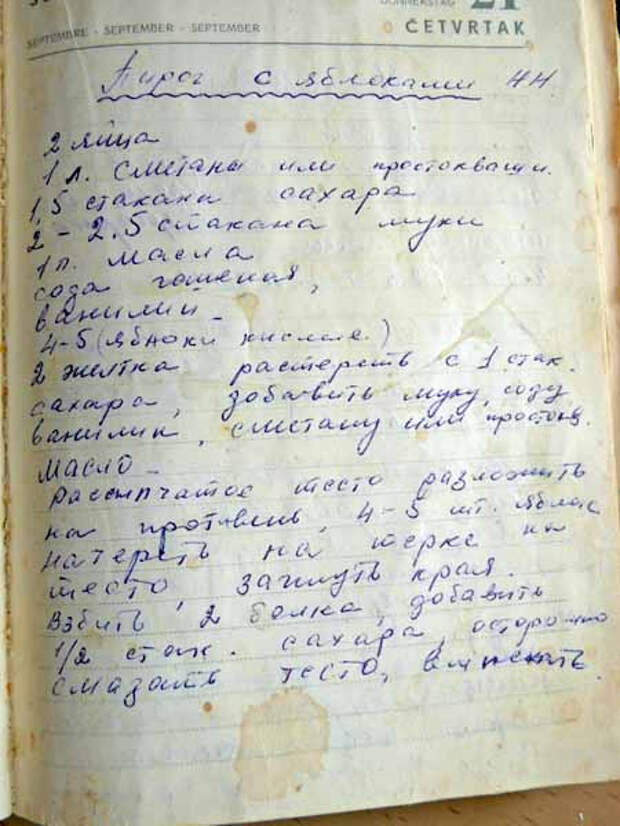 DONNERSTAG 21
SEPTEMBRE - SEPTEMBER - SEPTEMBER
ČETVRTAK
Пирог с яблоками НН
2 яйца
1 л. сметаны или простокваши.
1,5 стакана сахара
2 - 2.5 стакана муки
1 п. масла
сода гашеная,
ванилин -
4-5 (яблоки кислые.)
2 желтка растереть с 1 стак.
сахара, добавить муку, соду
ванилин, сметану или простокв.
масло -
Рассыпчатое тесто разложить
на противень, 4-5 шт. яблок
натереть на терке на
тесто, загнуть края.
Взбить, 2 белка, добавить
1/2 стак. сахара, осторожно
смазать тесто, выпекать.